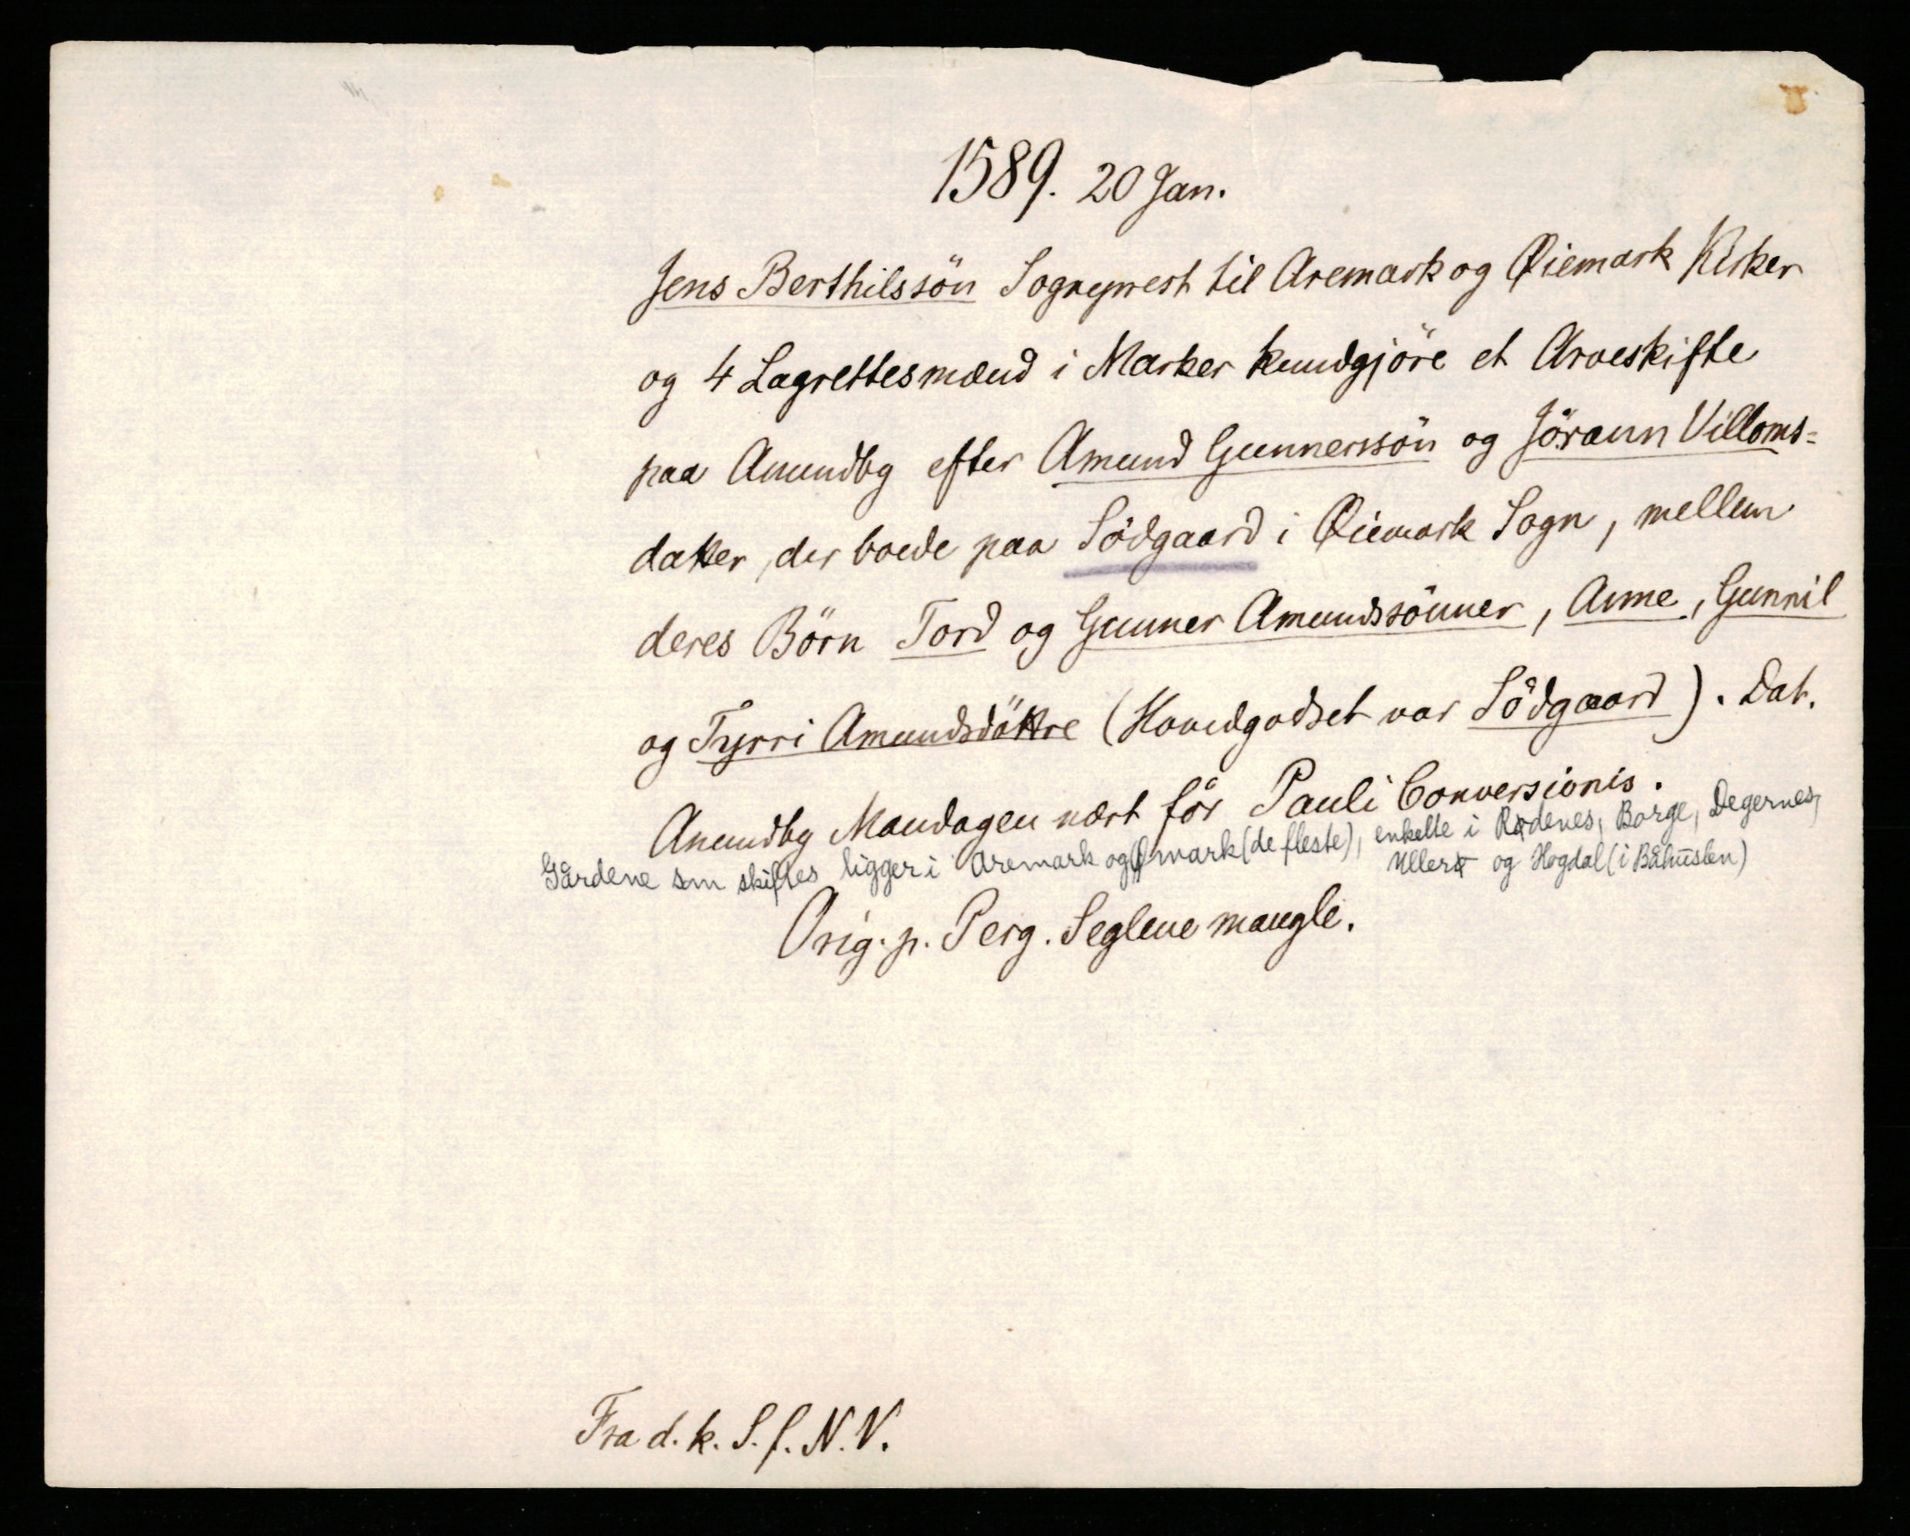 1589. 20 Jan.
Jens Berthilssön Sogneprest til Aremark og Øiemark Kirker
og 4 Lagrettesmænd i Marker kundgjöre et Arveskifte
paa Anundby efter Amund Gunnerssön og Jörann Villoms-
datter, der boede paa Södgaard i Øiemark Sogn, mellem
deres Börn Tord og Gunner Amundssönner, Anne, Gunnil
og Tyrri Amundsdöttre (Hovedgodset var Södgaard). Dat.
Anundby Mandagen nært för Pauli Conversionis.
Gårdene som skiftes ligger i Aremark og Ømark (de fleste), enkelte i Rødenes, Borge, Degernes,
Ullerø og Hogdal (i Båhuslen)
Orig. p. Perg. Seglene mangle.
Fra d. k. S. f. N. V.